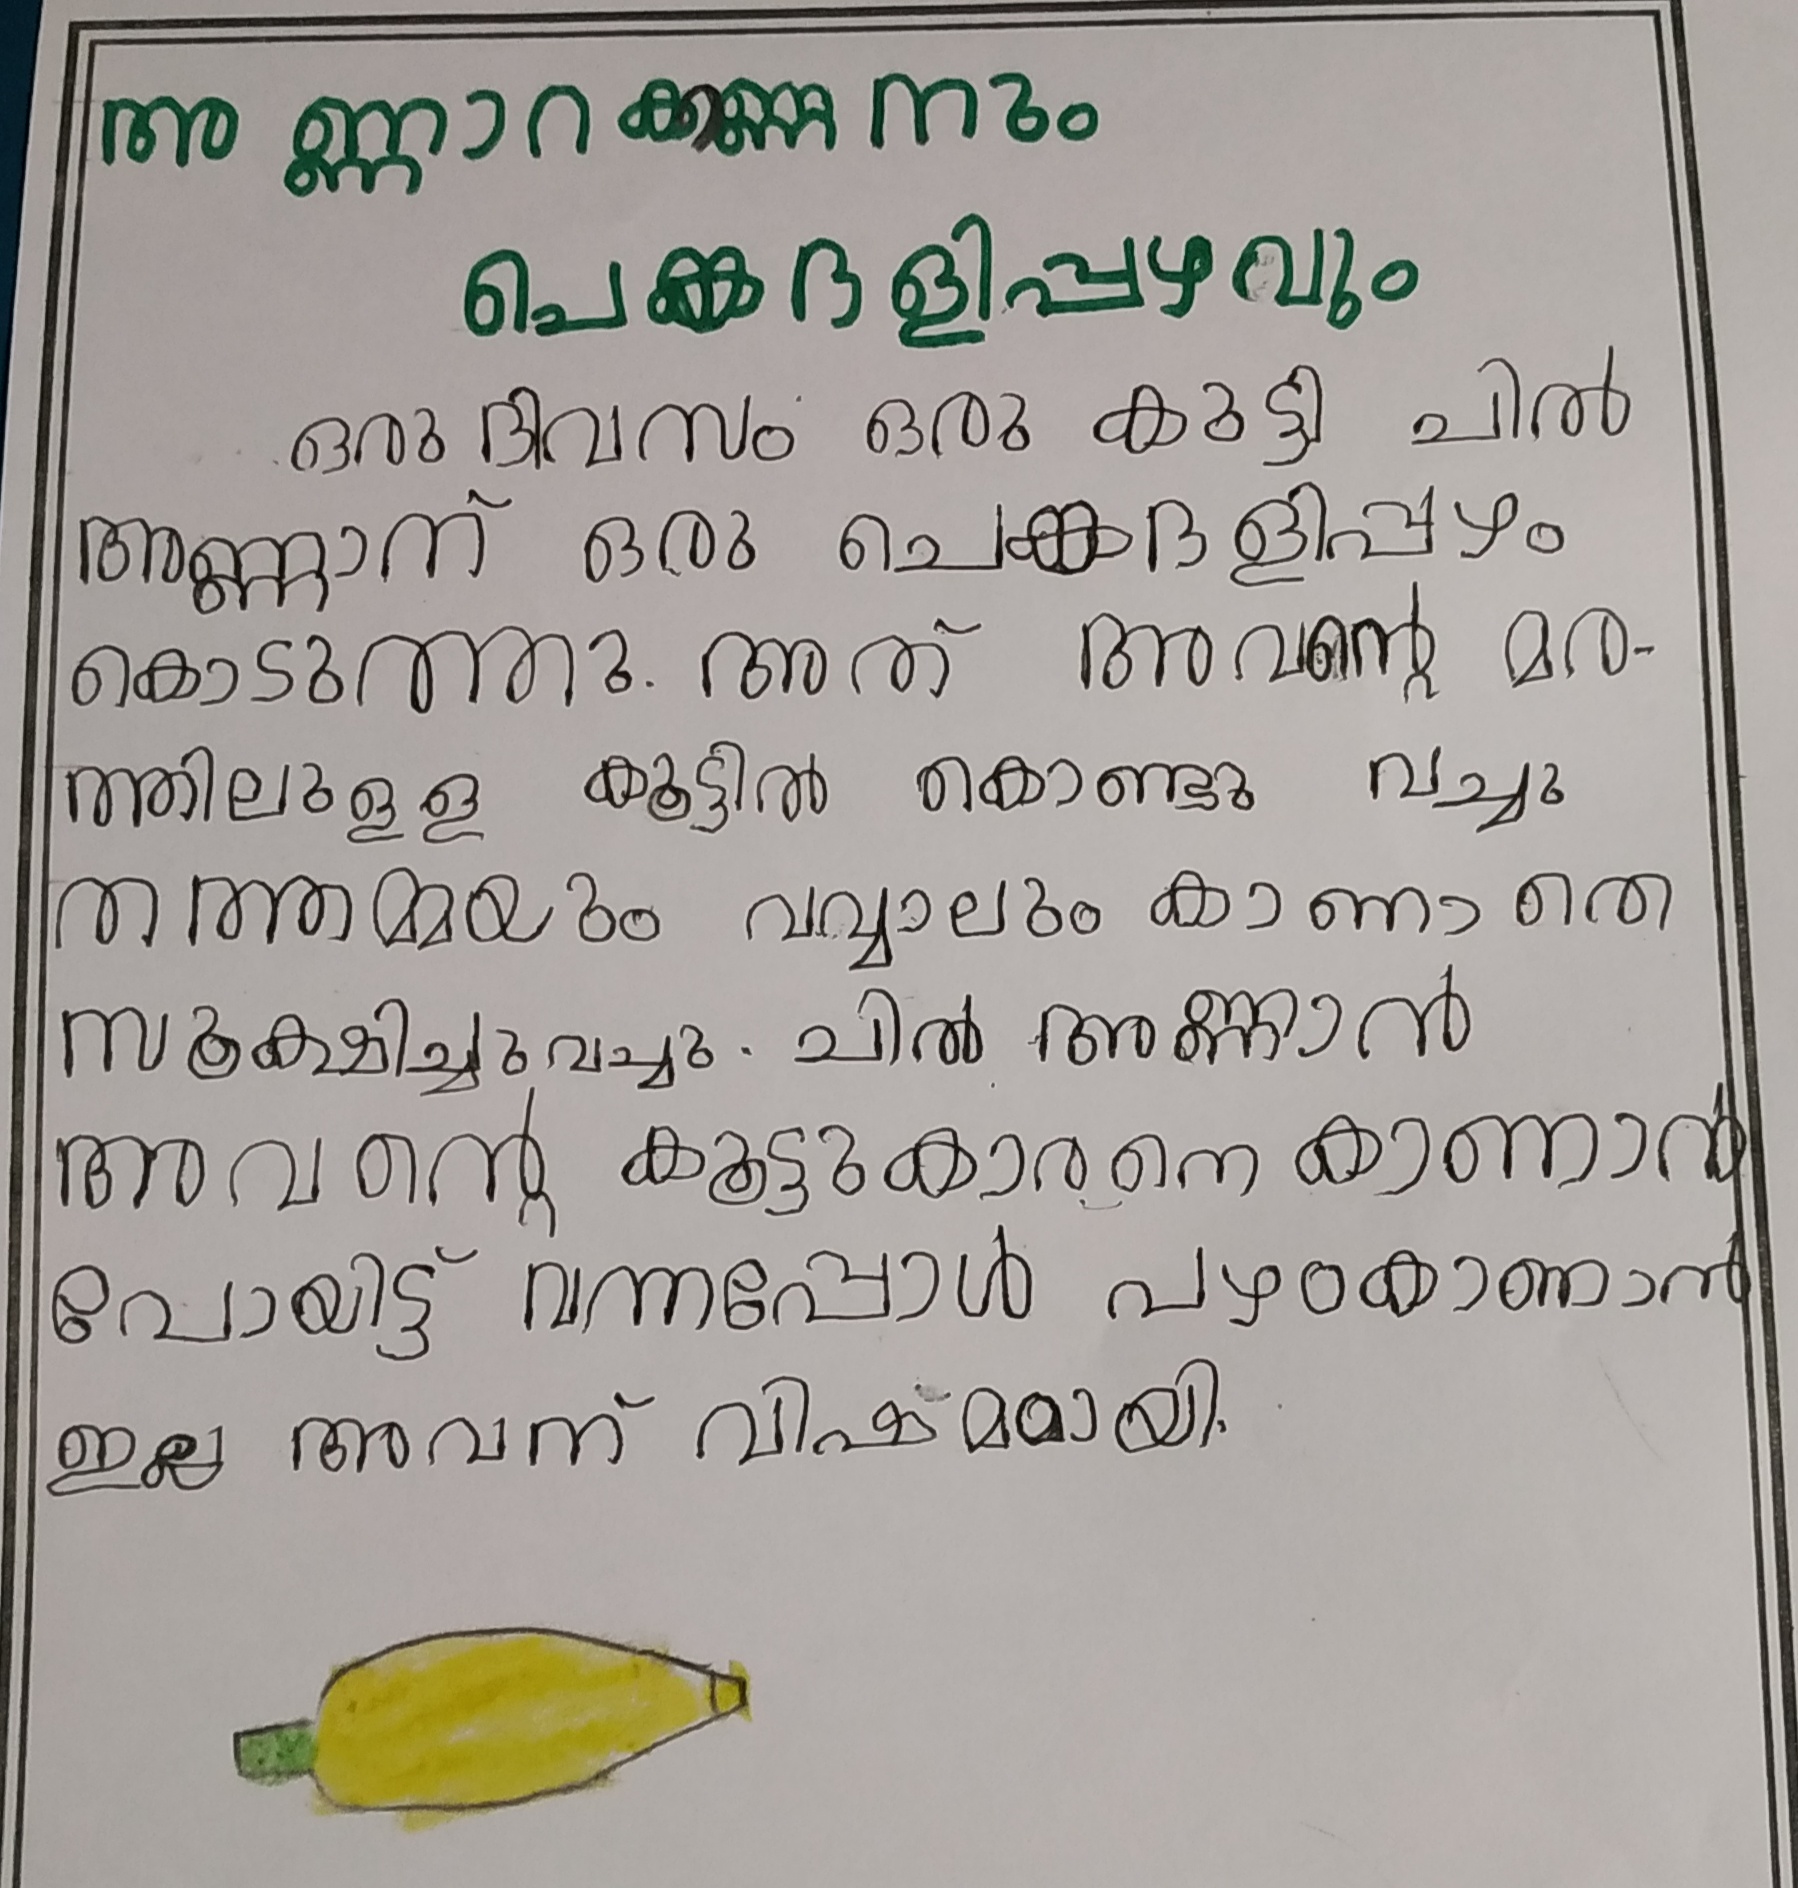 അണ്ണാറക്കണ്ണനും
ചെങ്കദളിപ്പഴവും
ഒരു ദിവസം ഒരു കുട്ടി ചിൽ
അണ്ണാന് ഒരു ചെങ്കദളിപ്പഴം
കൊടുത്തു. അത് അവന്റെ മര-
ത്തിലുളള കൂട്ടിൽ കൊണ്ടു വച്ചു
തത്തമ്മയും വവ്വാലും കാണാതെ
സൂക്ഷിച്ചുവച്ചു. ചിൽ അണ്ണാൻ
അവന്റെ കൂട്ടുകാരനെ കാണാൻ
പോയിട്ട് വന്നപ്പോൾ പഴംകാണാൻ
ഇല്ല അവന് വിഷ്മമായി.